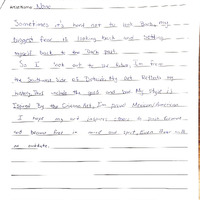 None
Sometimes it's hard not to look back, my
biggest fear is looking back and setting
myself back to the dark past.
So I look out to the future, I'm from
the Southwest side of Detroit. My art Reflects my
history, that include the good and bad. My style is
Inspired By the Chicano Art, I'm proud Mexican/American
I hope my art inspires others to
and become free in mind and soul, even if
no